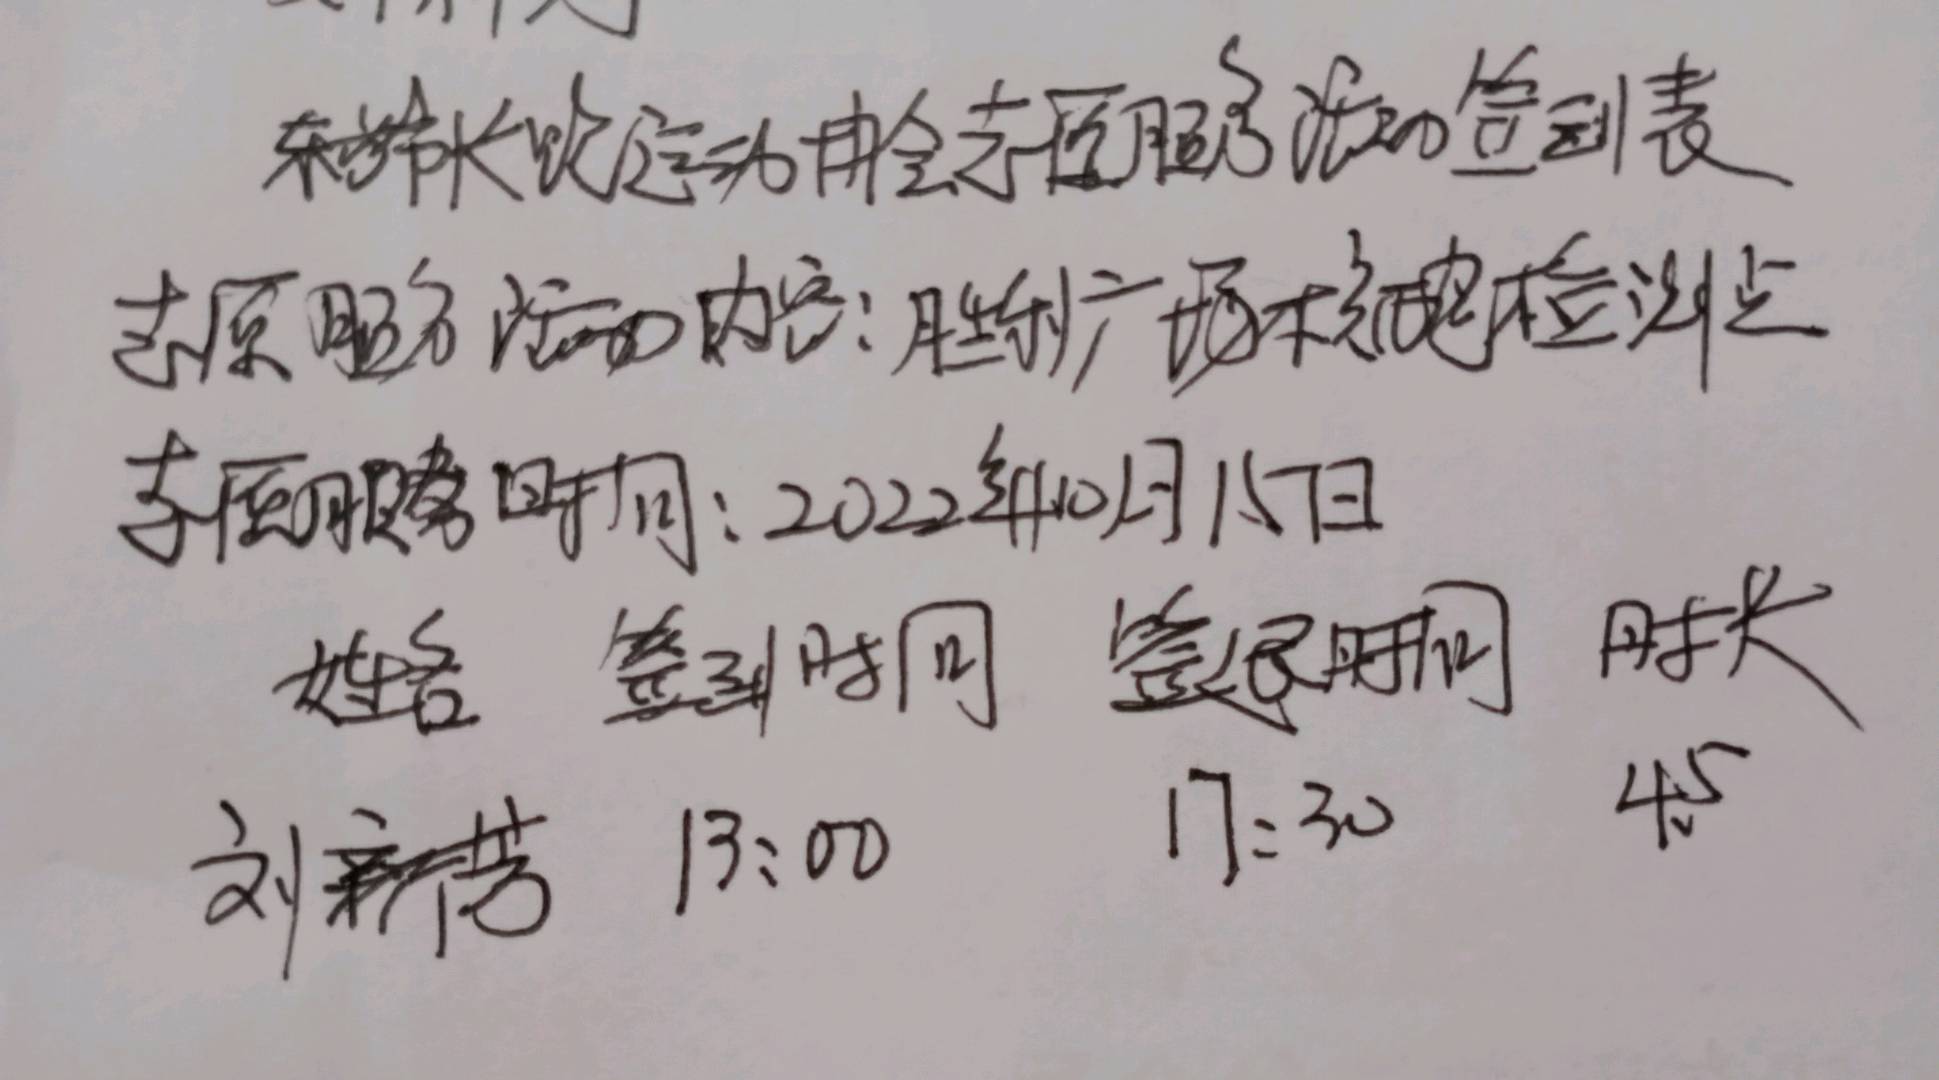 长跑运动协会志愿服务活动签到表
志愿服务活动内容:胜利广场核酸检测点
志愿服务时间:2022年10月15日
姓名 签到时间 签退时间 时长
刘新芳 13:00 17:30 4.5